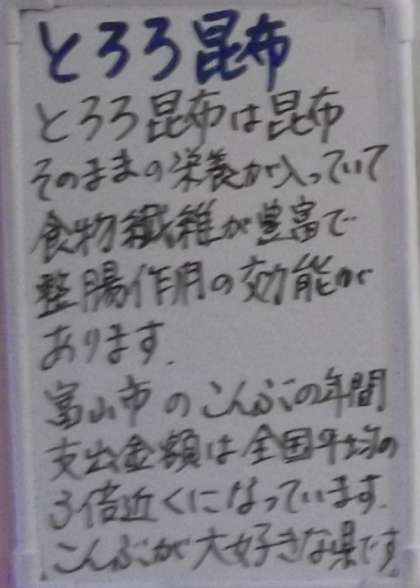 とろろ昆布
とろろ昆布は昆布
そのままの栄養が入っていて
食物繊維が豊富で
整腸作用の効能が
あります.
富山市のこんぶの年間
支出金額は全国平均の
3倍近くになっています.
こんぶが大好きな県です.